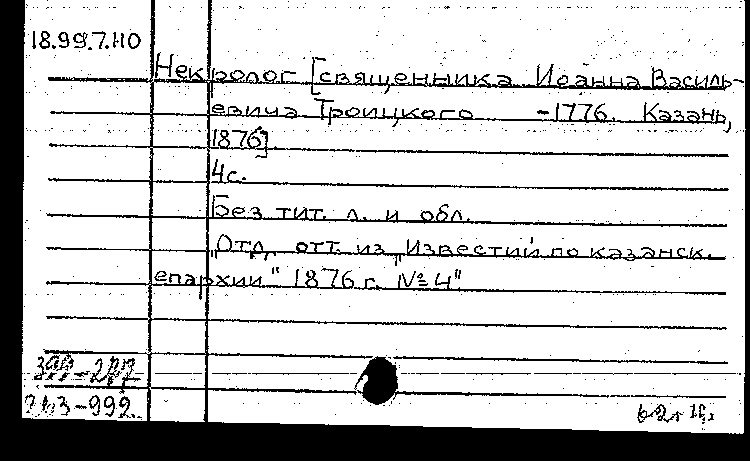 18.99.7.110
Некролог [священника Иоанна Василь-
евича Троицкого -1776. Казань,
1876]
4с.
Без тит. л. и обл.
"Отд. отт. из „Известий по казанск.
епархии" 1876 г. №4"
399-277
263-992.